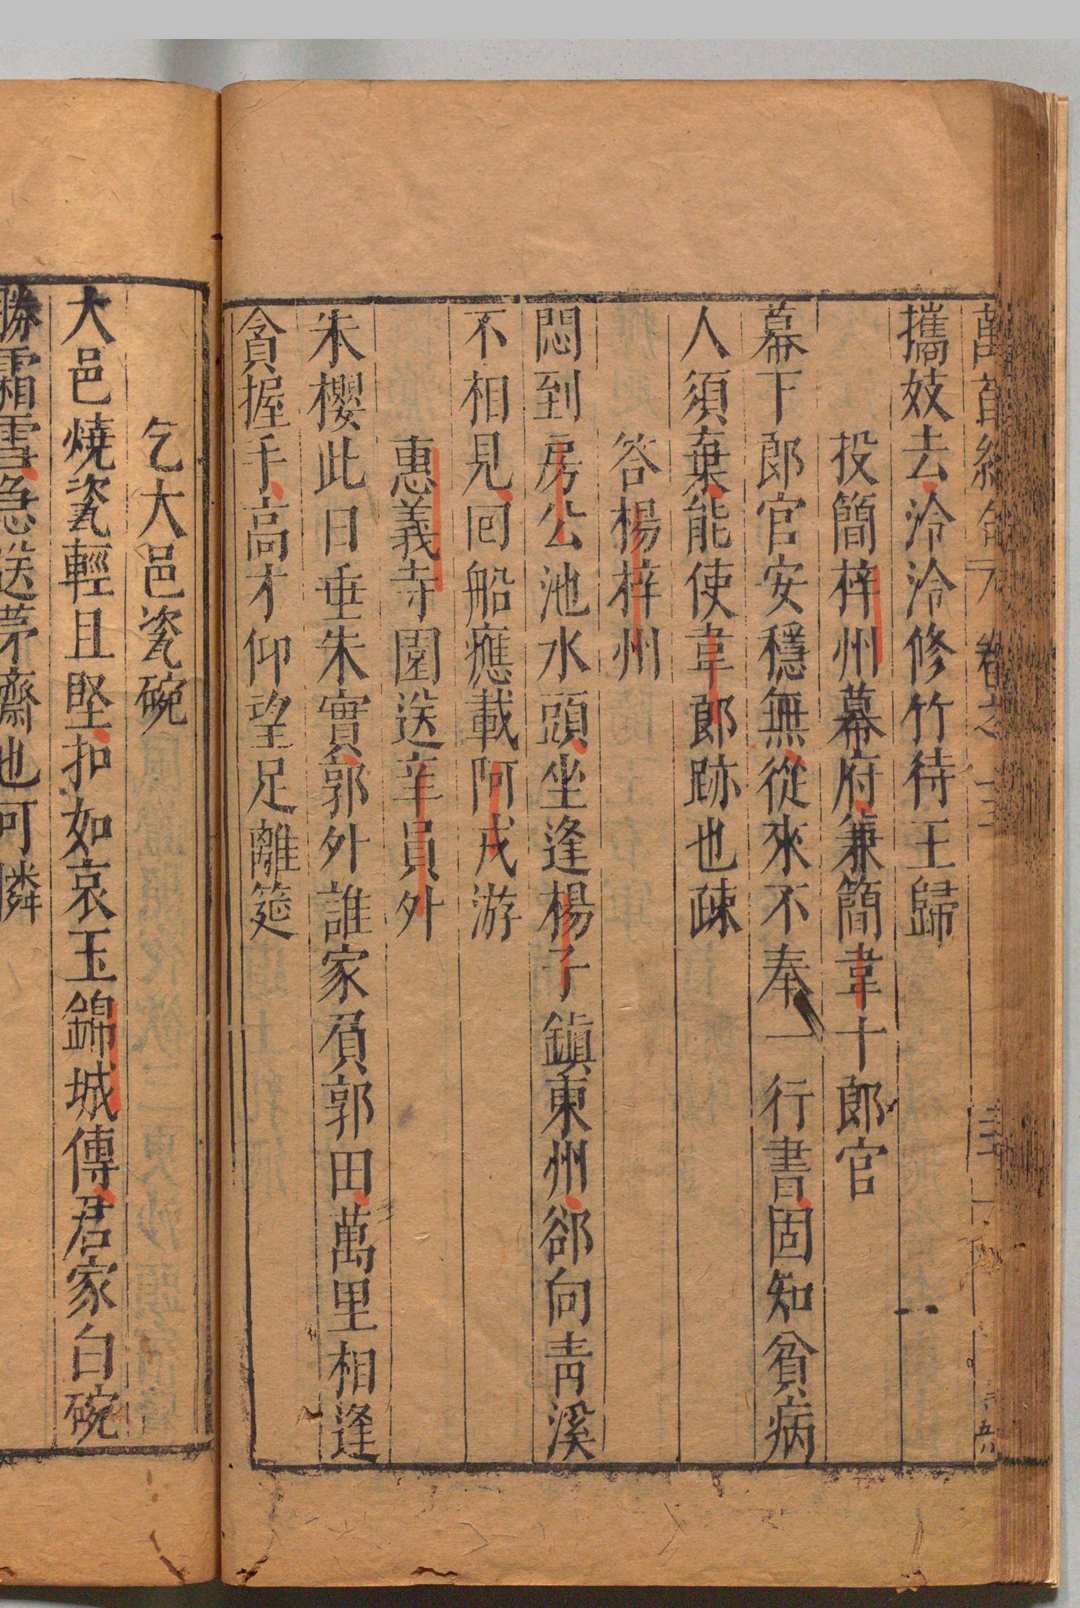 萬首絕句 卷之
攜妓去泠泠修竹待王歸
投簡梓州幕府兼簡韋十郎官
幕下郎官安穩無從來不奉一行書固知貧病
人須棄能使韋郎跡也疎
答楊梓州
悶到房公池水頭坐逢楊子鎮東州卻向青溪
不相見回船應載阿戎游
惠義寺園送辛員外
朱櫻此日垂朱實郭外誰家負郭田萬里相逢
貪握手高才仰望足離筵
乞大邑瓷碗
大邑燒瓷輕且堅扣如哀玉錦城傳君家白碗
勝霜雪急送茅齋也可憐